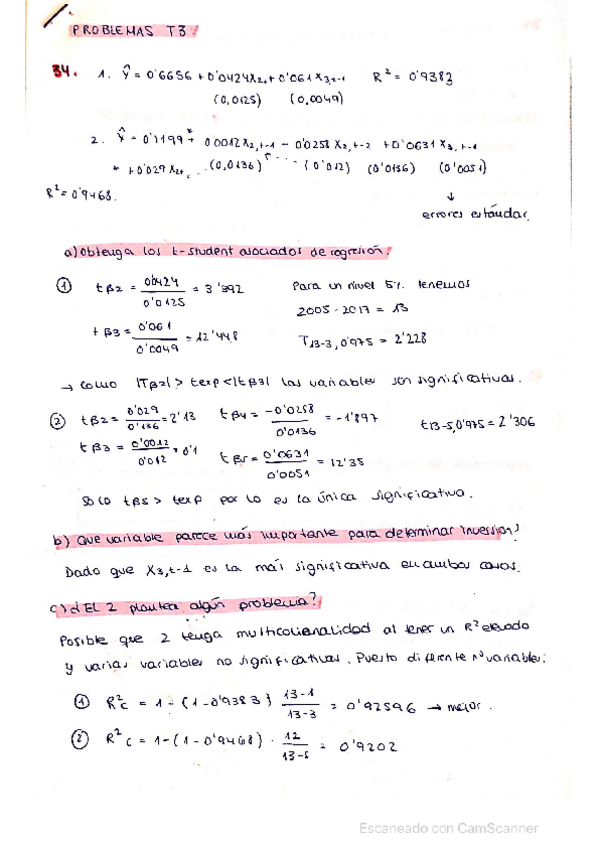 PROBLEMAS T3:
34. 1. Ŷ = 0'6656 + 0'0424X2t + 0'061X3,t-1 R² = 0'9383
(0,0125) (0,0049)
2. Ŷ = 0'1199 + * 0'0012X2,t-1 - 0'0258X2,t-2 + 0'0631X3,t-1
* + 0'029X2t (0,0136) (0'012) (0'0136) (0'0051)
R² = 0'9468.
↓
errores estándar
a) Obtenga los t-student asociados de regresión:
① tβ2 = 0'0424 / 0'0125 = 3'392 Para un nivel 5% tenemos
2005 - 2017 = 13
tβ3 = 0'061 / 0'0049 = 12'448 T13-3, 0'975 = 2'228
→ como |Tβ2| > texp < |tβ3| las variables son significativas.
② tβ2 = 0'029 / 0'136 = 2'13 tβ4 = -0'0258 / 0'0136 = -1'897 t13-5, 0'975 = 2'306
tβ3 = 0'0012 / 0'012 = 0'1 tβ5 = 0'0631 / 0'0051 = 12'35
Solo tβ5 > texp por lo es la única significativa.
b) Que variable parece más importante para determinar inversión?
Dado que X3,t-1 es la más significativa en ambos casos.
c) ¿El 2 plantea algún problema?
Posible que 2 tenga multicolianalidad al tener un R² elevado
y varias variables no significativas. Puesto diferente nº variables:
① R²c = 1 - (1 - 0'9383) 13-1 / 13-3 = 0'92596 → mejor.
② R²c = 1 - (1 - 0'9468) · 12 / 13-5 = 0'9202
Escaneado con CamScanner